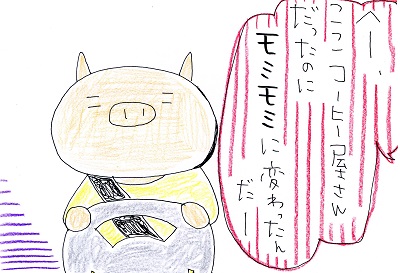 へー、
ここコーヒー屋さん
だったのに
モミモミに変わったん
だー